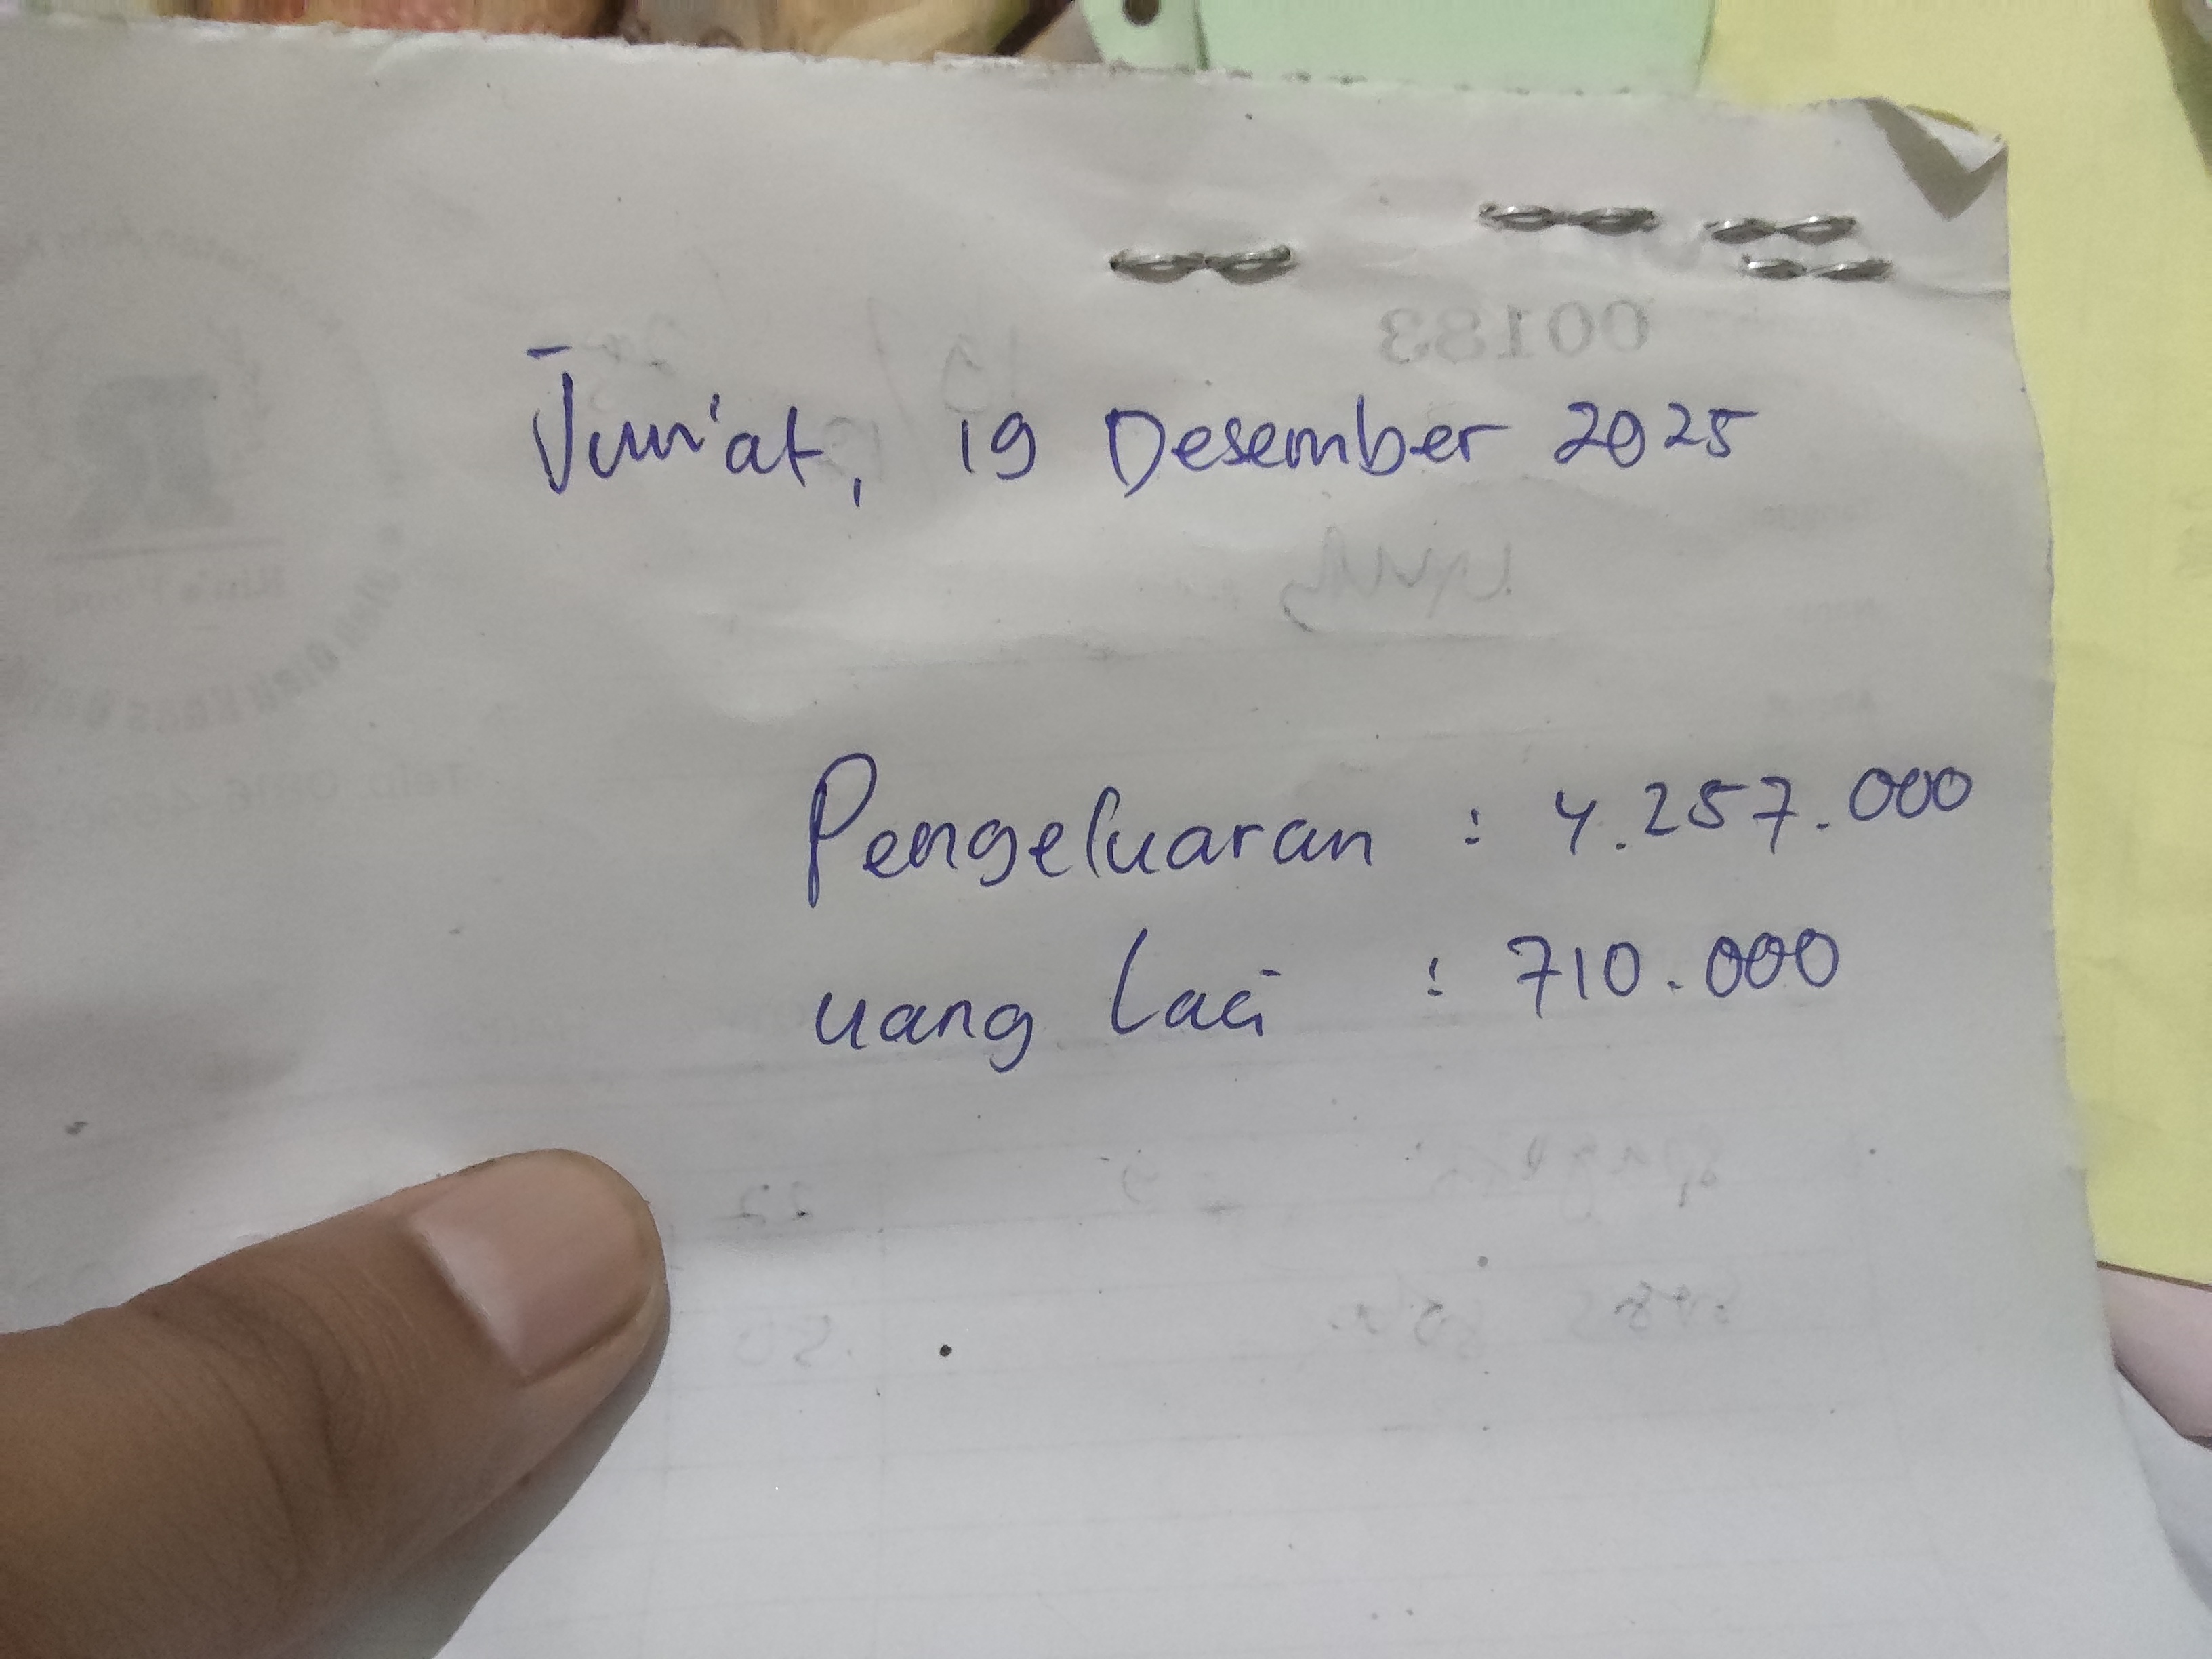 Jum'at, 19 Desember 2025
Pengeluaran : 4.257.000
uang Laci : 710.000
00183